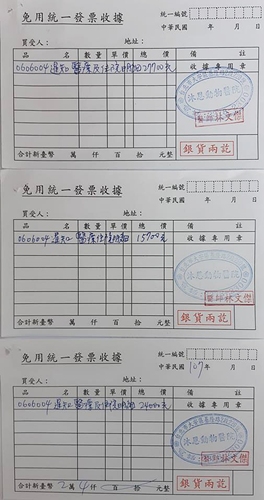 免用統一發票收據
統一編號
中華民國 年 月 日
買受人： 地址：
品 名 數量 單價 總價 備 註
0606004 醫療及住院 27700元 收據專用章
沐恩動物醫院
醫師林文傑
銀貨兩訖
合計新臺幣 萬 仟 百 拾 元整
免用統一發票收據
統一編號
中華民國 年 月 日
買受人： 地址：
品 名 數量 單價 總價 備 註
0606004 醫療住院 15700元 收據專用章
沐恩動物醫院
醫師林文傑
銀貨兩訖
合計新臺幣 萬 仟 百 拾 元整
免用統一發票收據
統一編號
中華民國 107年 月 日
買受人： 地址：
品 名 數量 單價 總價 備 註
0606004 醫療及住院 24000元 收據專用章
沐恩動物醫院
醫師林文傑
銀貨兩訖
合計新臺幣 2萬 4仟 百 拾 元整